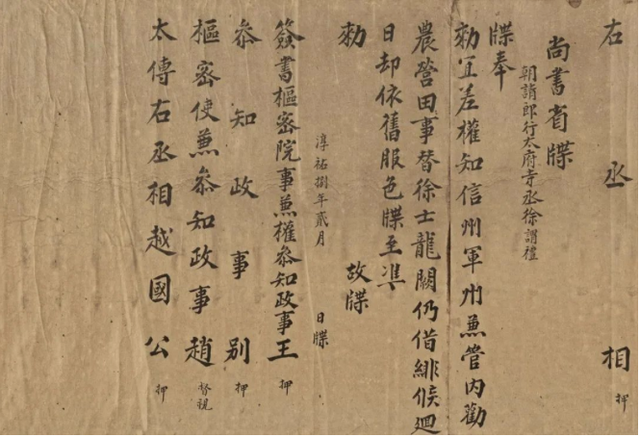 右丞相押
尚書省牒
朝請郎行太府寺丞徐謂禮
牒奉
勑宜差權知信州軍州兼管內勸
農營田事替徐士龍闕仍借緋候迴
日却依舊服色牒至準
勑　故牒
淳祐捌年貳月　日牒
簽書樞密院事兼權參知政事王押
叅知政事別押
樞密使兼叅知政事趙督視
太傅右丞相越國公押